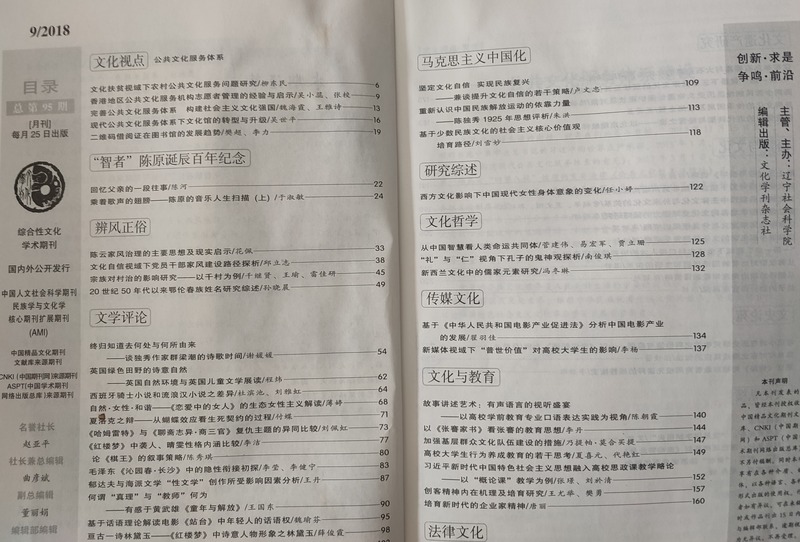 9/2018
目录
总第95期
[月刊]
每月25日出版
综合性文化
学术期刊
国内外公开发行
中国人文社会科学期刊
民族学与文化学
核心期刊扩展期刊
(AMI)
中国精品文化期刊
文献库来源期刊
CNKI（中国期刊网）来源期刊
ASPT（中国学术期刊
网络出版总库）来源期刊
名誉社长
赵亚平
社长兼总编辑
曲彦斌
副总编辑
董丽娟
编辑部编辑
文化视点 公共文化服务体系
文化扶贫视域下农村公共文化服务问题研究/柳东民 6
香港地区公共文化服务机构志愿者管理的经验与启示/吴小蕊、张校 9
完善公共文化服务体系 构建社会主义文化强国/魏海霞、王维诗 13
现代公共文化服务体系下文化馆的转型与升级/吴世平 16
二维码借阅证在图书馆的发展趋势/樊超、李力 19
“智者”陈原诞辰百年纪念
回忆父亲的一段往事/陈河 22
乘着歌声的翅膀——陈原的音乐人生扫描（上）/于淑敏 24
辨风正俗
陈云家风治理的主要思想及现实启示/花佩 33
文化自信视域下党员干部家风建设路径探析/邱立志 38
宗族对村治的影响研究——以千村为例/千继贤、王瑜、雷佳研 45
20世纪50年代以来鄂伦春族姓名研究综述/孙晓晨 49
文学评论
终归知道去何处与何所由来
——谈独秀作家群梁潮的诗歌时间/谢媛媛 54
英国绿色田野的诗意自然
——英国自然环境与英国儿童文学展读/程炜 62
西班牙骑士小说和流浪汉小说之差异/杜滨池、刘雅虹 64
自然·女性·和谐——《恋爱中的女人》的生态女性主义解读/薄婷 68
夏洛克之辩——从蝴蝶效应看生死契约的过程/付蝶 71
《哈姆雷特》与《聊斋志异·商三官》复仇主题的异同比较/刘佩虹 73
《红楼梦》中袭人、晴雯性格内涵比较/李洁 77
论《棋王》的叙事策略/陈秀琪 80
毛泽东《沁园春·长沙》中的隐性衔接初探/李莹、李健宁 83
郁达夫与海派文学“性文学”创作所受影响因素分析/王丹 87
何谓“真理”与“教师”何为
——有感于黄武雄《童年与解放》/王国东 90
基于话语理论解读电影《站台》中年轻人的话语权/魏瑜芬 95
亘古一诗林黛玉——《红楼梦》中诗意人物形象之林黛玉/薛俊霞 98
马克思主义中国化
坚定文化自信 实现民族复兴
——兼谈提升文化自信的若干策略/卢文忠 109
重新认识中国民族解放运动的依靠力量
——陈独秀1925年思想评析/朱洪 113
基于少数民族文化的社会主义核心价值观
培育路径/刘雪妙 118
研究综述
西方文化影响下中国现代女性身体意象的变化/任小婷 122
文化哲学
从中国智慧看人类命运共同体/管建伟、易宏军、贾立珊 125
“礼”与“仁”视角下孔子的鬼神观探析/南俊琪 128
新西兰文化中的儒家元素研究/冯冬琳 132
传媒文化
基于《中华人民共和国电影产业促进法》分析中国电影产业
的发展/翟羽佳 134
新媒体视域下“普世价值”对高校大学生的影响/李杨 137
文化与教育
故事讲述艺术：有声语言的视听盛宴
——以高校学前教育专业口语表达实践为视角/陈朝霞 140
以《张謇家书》看张謇的教育思想/李丹 144
加强基层群众文化队伍建设的措施/乃提帕·夏合买提 147
高校大学生行为养成教育的若干思考/夏春元、代艳红 149
习近平新时代中国特色社会主义思想融入高校思政课教学略论
——以“概论课”教学为例/张瑾、刘衿清 152
创客精神内在机理及培育研究/王允学、樊勇 157
培育新时代的企业家精神/唐丽 160
法律文化
创新·求是
争鸣·前沿
主管、主办：辽宁社会科学院
编辑出版：文化学刊杂志社
本刊声明